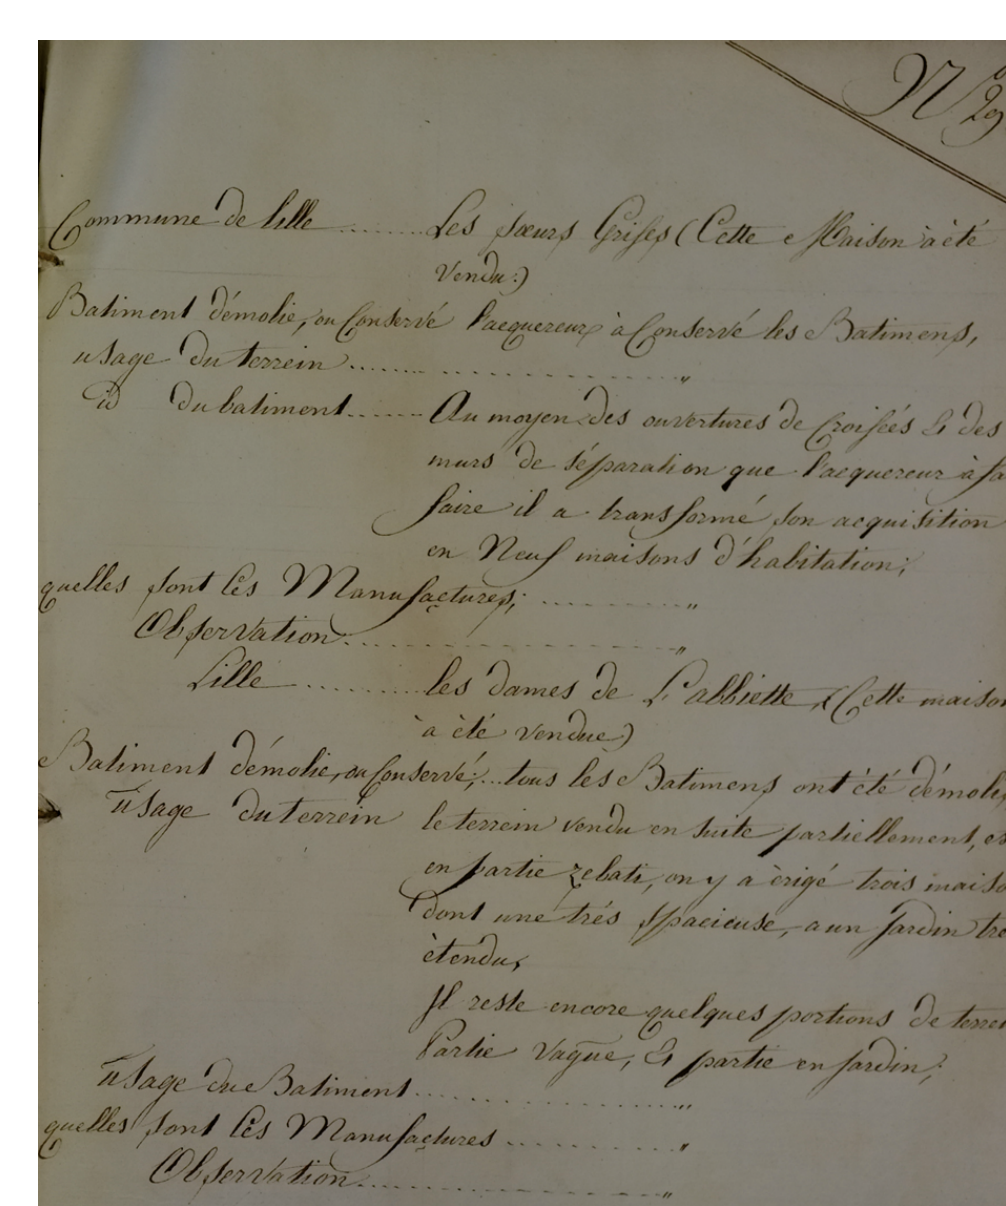 N.º 29
Commune de lille ........ Les sœurs Grises (Cette Maison à été
Vendu:)
Batiment démolie, ou Conservé l'acquereur à Conservé les Batimens,
usage du terrein ...... .............. "
id du batiment ...... Au moyen des ouvertures de Croisées & des
murs de séparation que l'acquereur à fa
faire il a transformé son acquisition
en Neuf maisons d'habitation;
quelles sont les Manufactures; ............ "
Observation: .................... "
Lille ......... les dames de L'abbiette, (Cette maison
à été vendue)
Batiment démolie, ou Conservé; ... tous les Batimens ont été démoli
usage du terrein le terrein vendu en suite partiellement, es
en partie rebati, on y a èrigé trois maiso
dont une trés spacieuse, a un jardin tre
ètendu,
Il reste encore quelques portions de terrei
Partie vague, & partie en jardin;
usage du Batiment .................. "
quelles sont les Manufactures ............ "
Observation .................... "